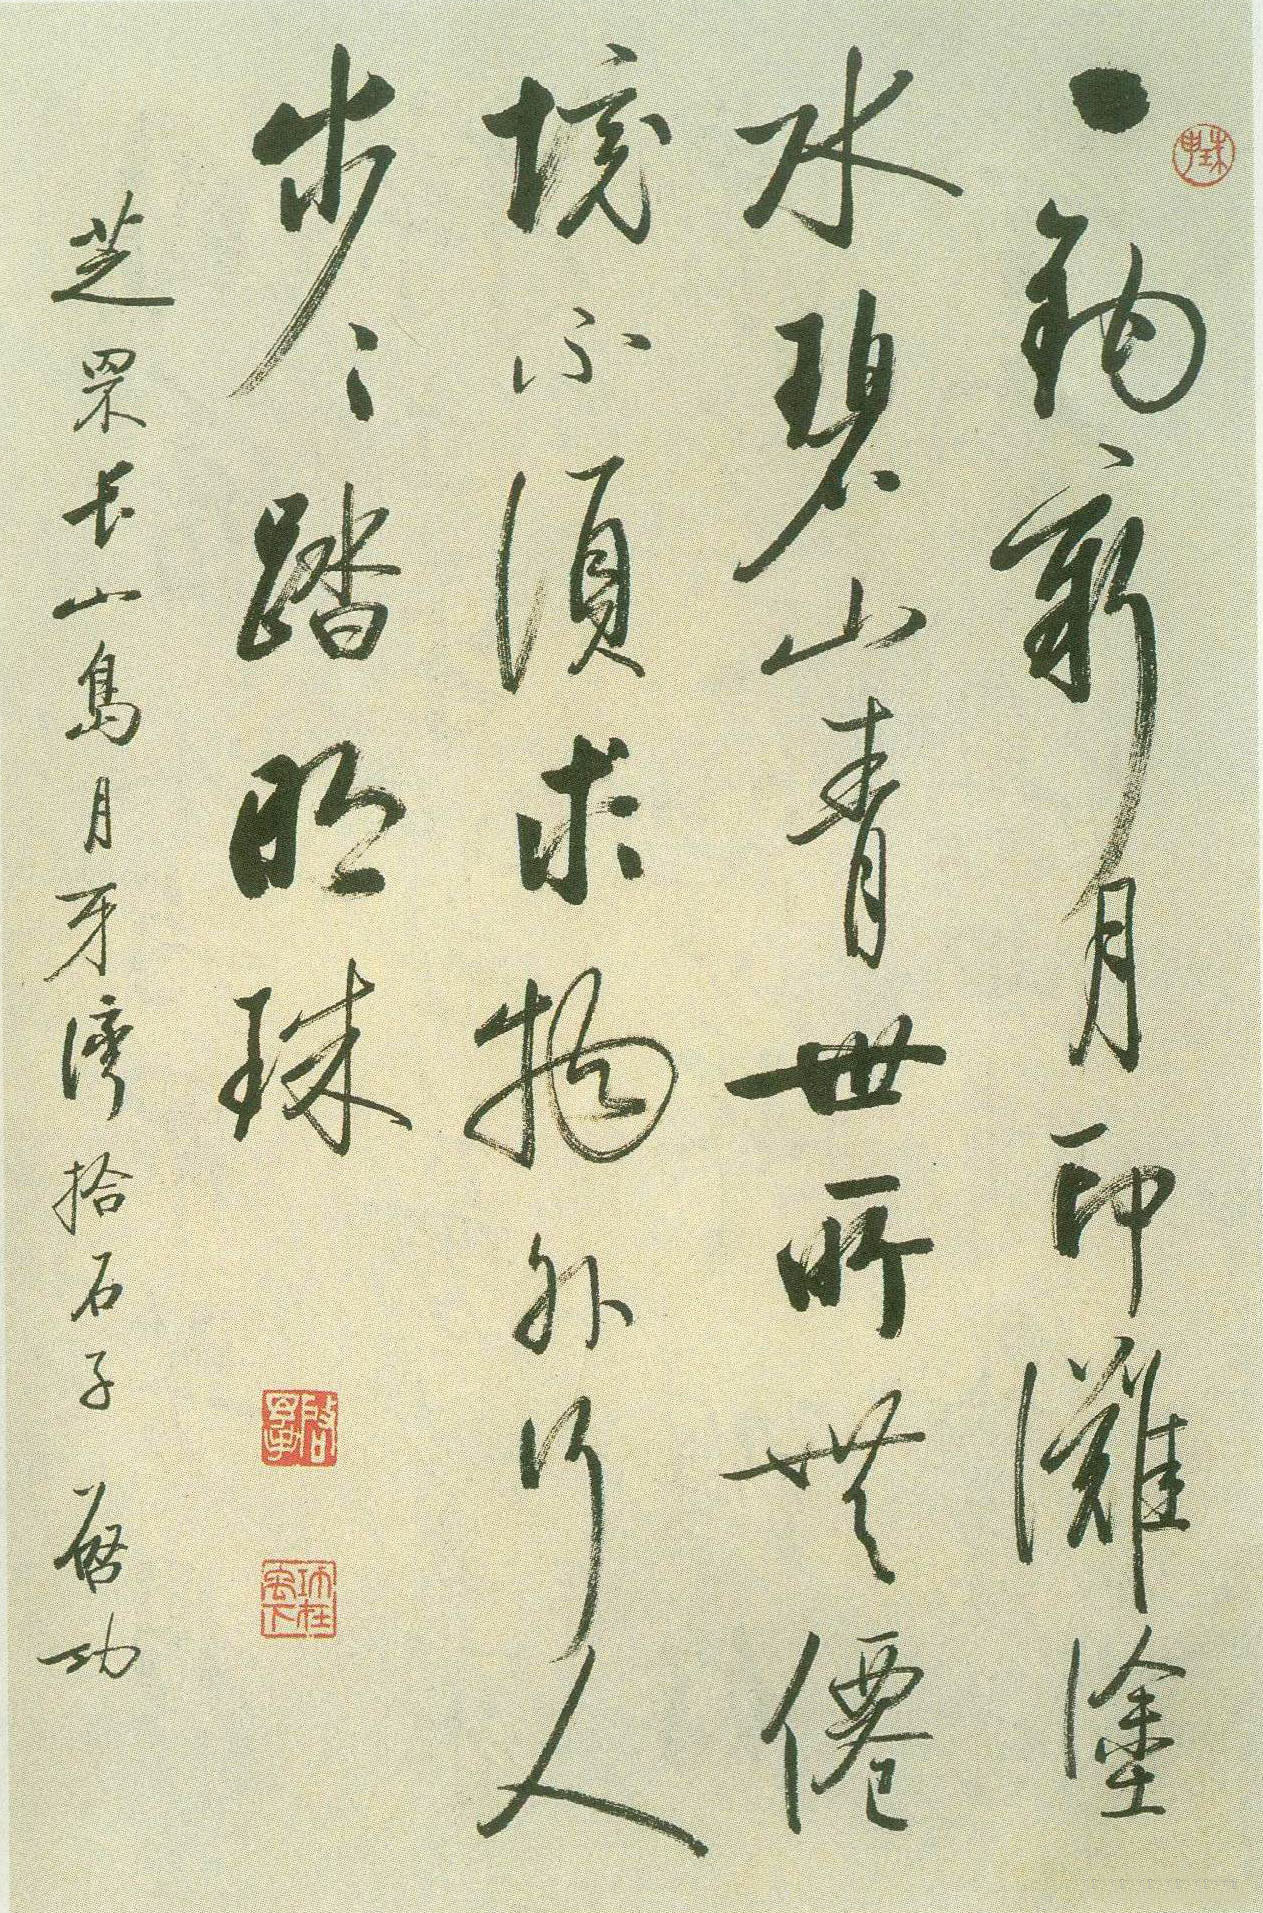 一鉤新月印灘塗
水碧山青世所無僊
境不須求物外行人
步〻踏明珠
芝罘長山島月牙灣拾石子 啟功